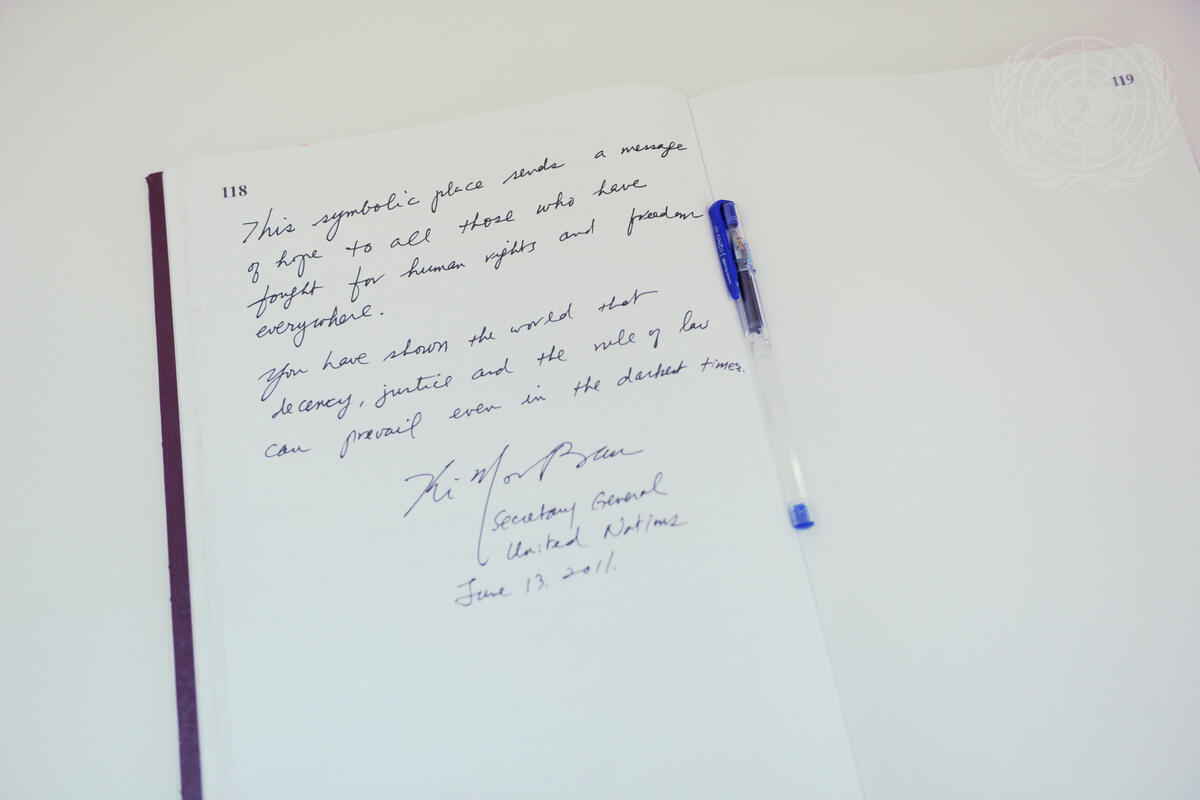 118
This symbolic place sends a message
of hope to all those who have
fought for human rights and freedom
everywhere.
You have shown the world that
decency, justice and the rule of law
can prevail even in the darkest times.
Ki Moon Ban
Secretary General
United Nations
June 13. 2011.
119